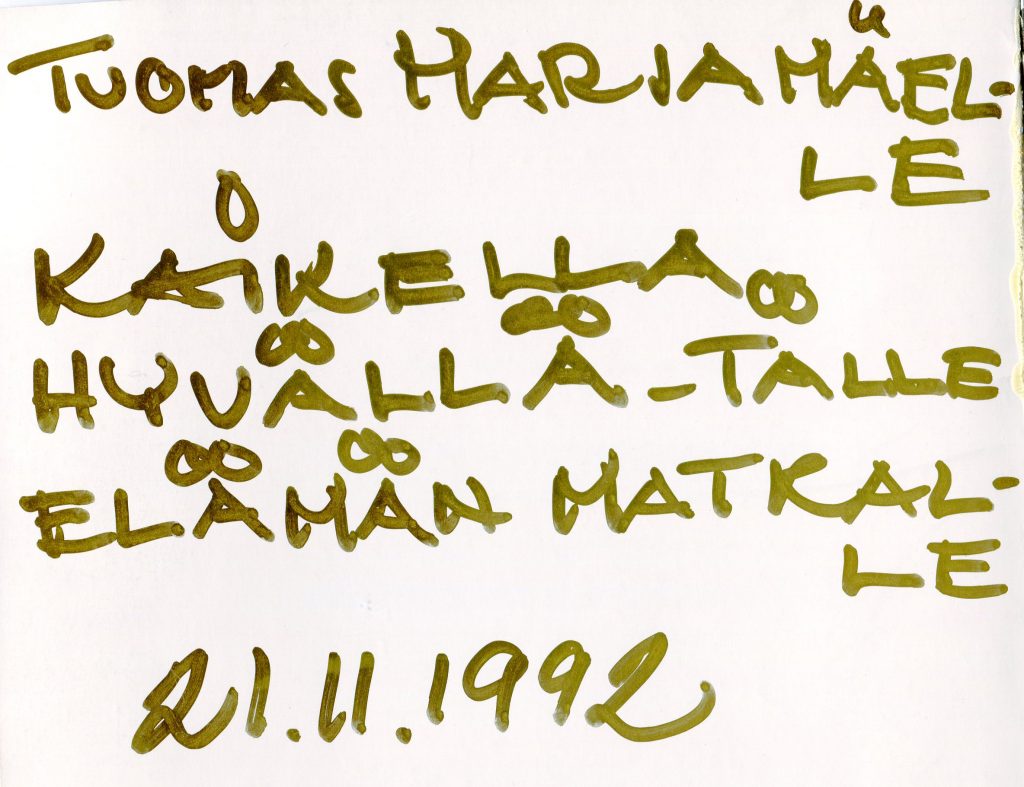 TUOMAS MARJAMÄEL-
LE
KAIKELLA
HYVÄLLÄ-TÄLLE
ELÄMÄN MATKAL-
LE
21.11.1992